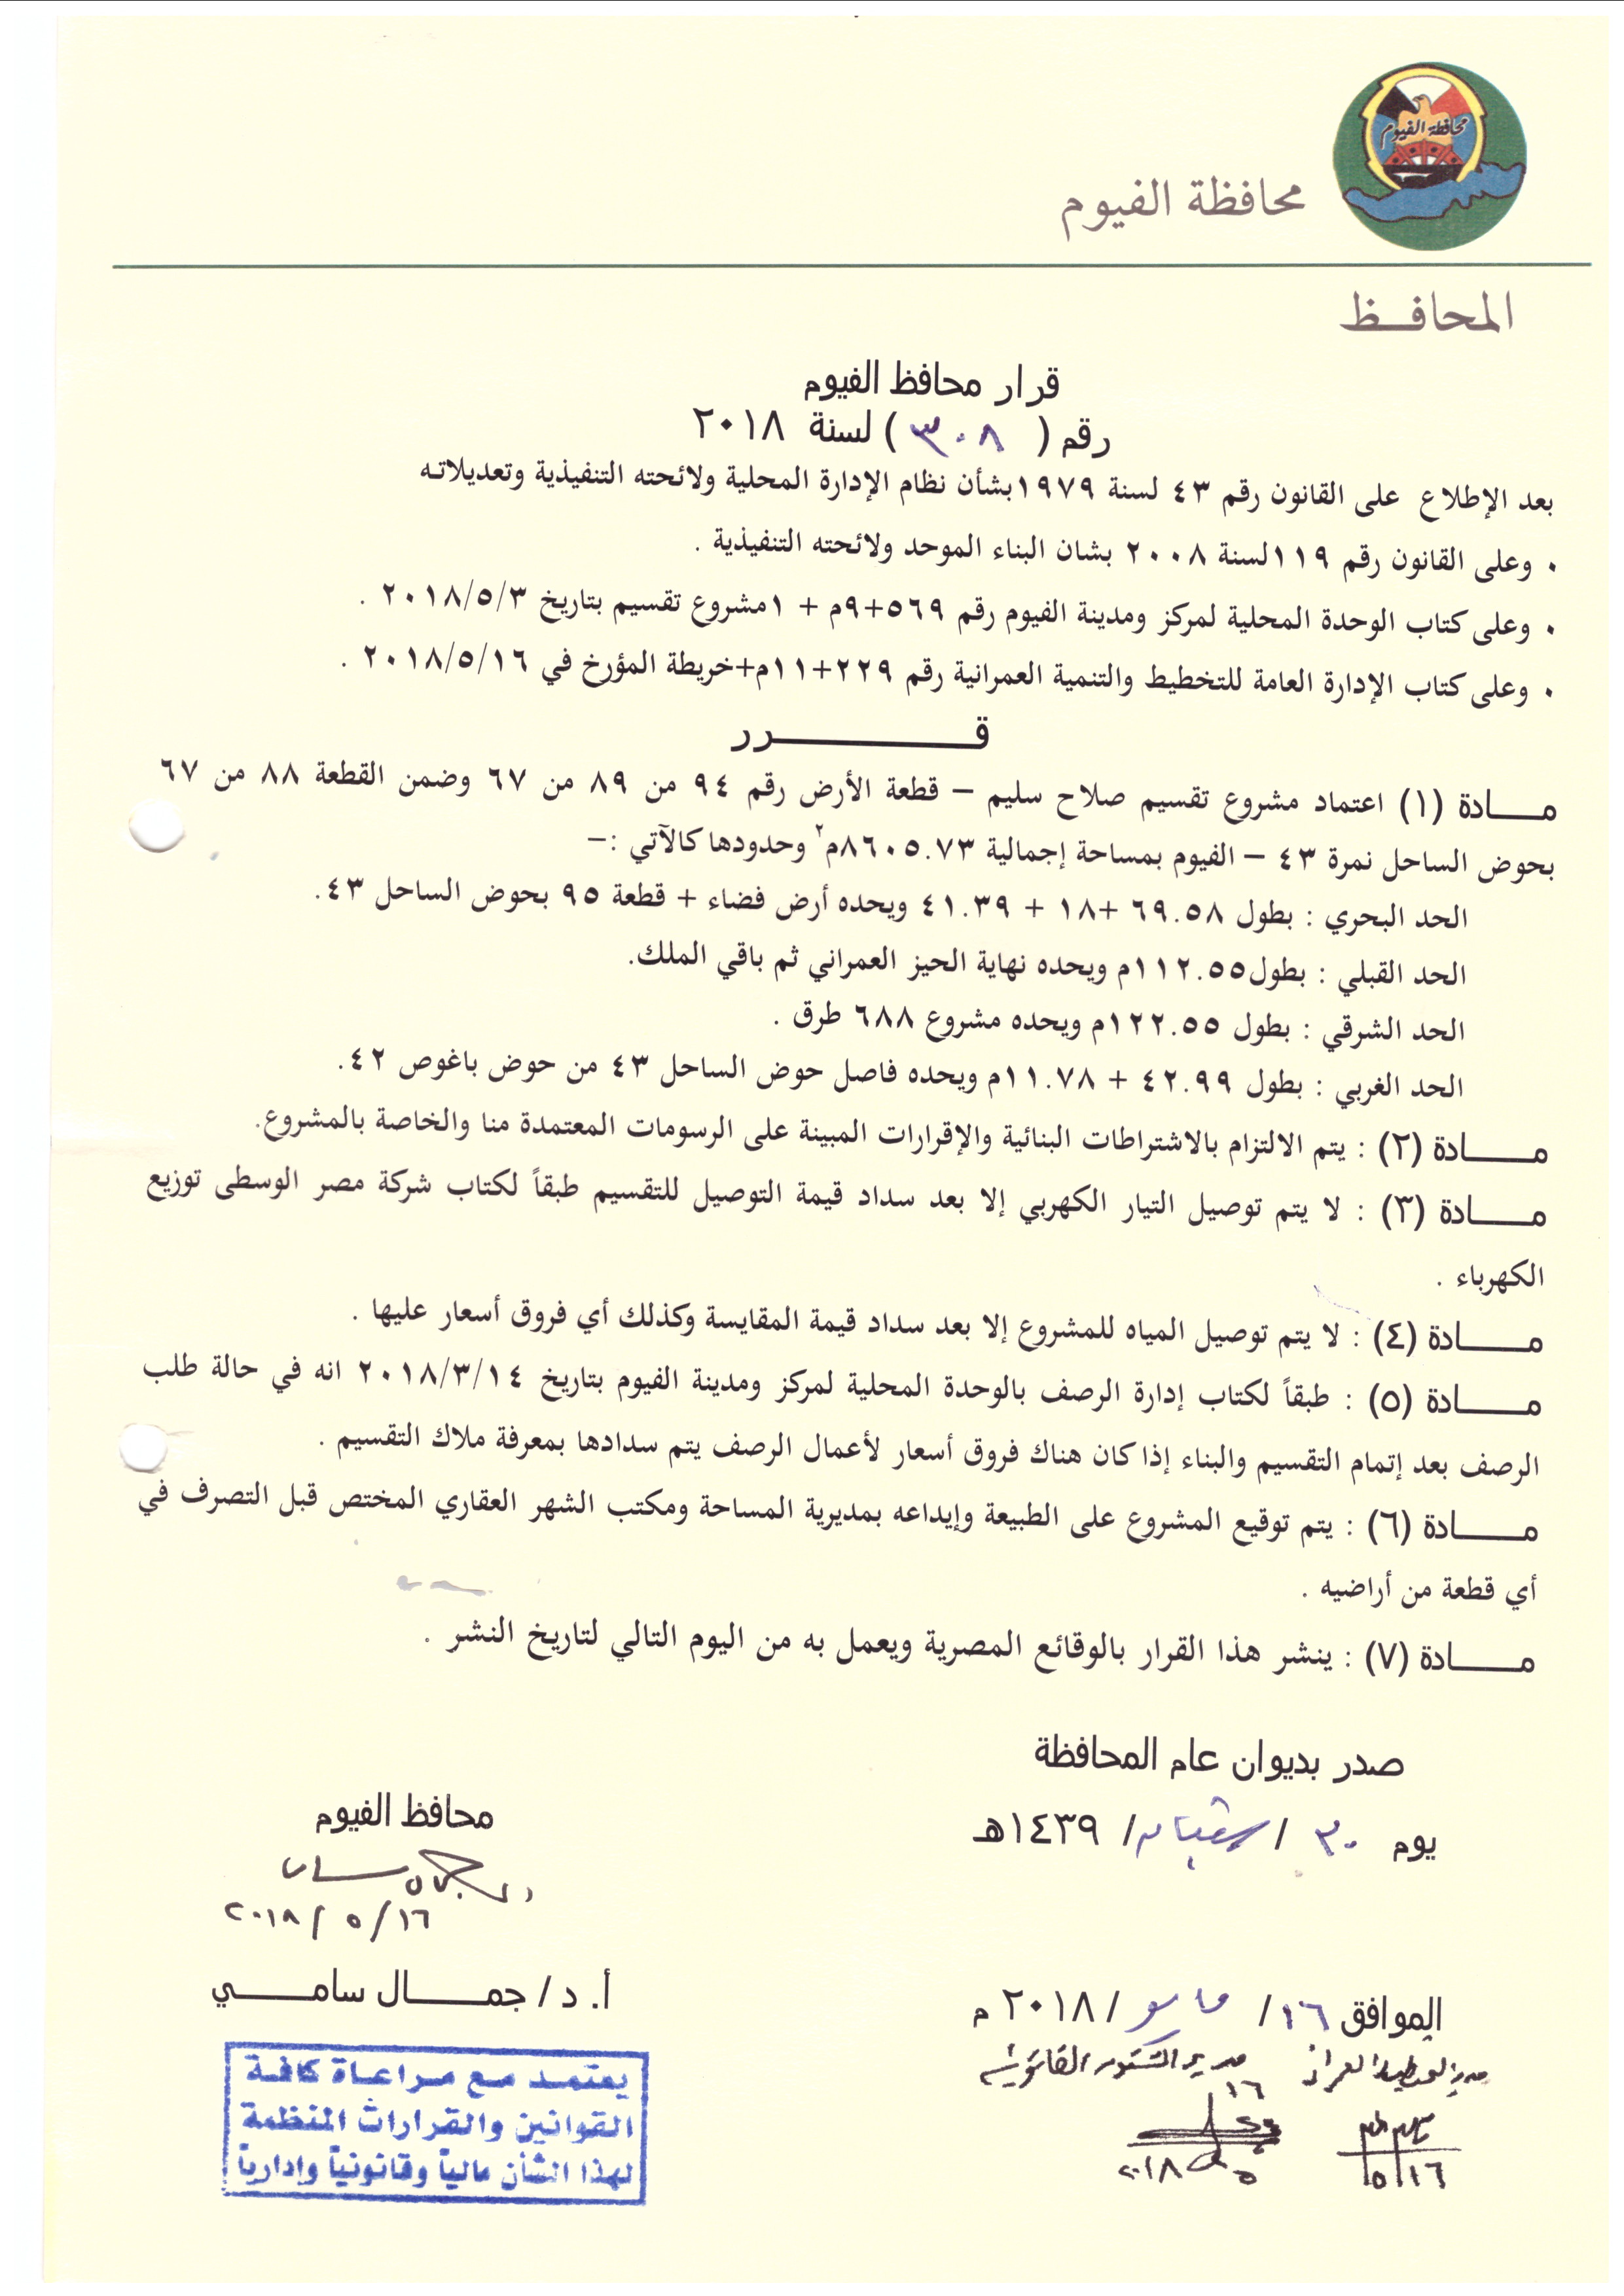 محافظة الفيوم
محافظة الفيوم
المحافـــظ
قرار محافظ الفيوم
رقم ( ٣٠٨ ) لسنة ٢٠١٨
بعد الإطلاع على القانون رقم ٤٣ لسنة ١٩٧٩بشأن نظام الإدارة المحلية ولائحته التنفيذية وتعديلاتـه
• وعلى القانون رقم ١١٩لسنة ٢٠٠٨ بشان البناء الموحد ولائحته التنفيذية .
• وعلى كتاب الوحدة المحلية لمركز ومدينة الفيوم رقم ٥٦٩+٩م + ١مشروع تقسيم بتاريخ ٢٠١٨/٥/٣ .
• وعلى كتاب الإدارة العامة للتخطيط والتنمية العمرانية رقم ٢٢٩+١١م+خريطة المؤرخ في ٢٠١٨/٥/١٦ .
قـــــــــــــرر
مــــــادة (١) اعتماد مشروع تقسيم صلاح سليم – قطعة الأرض رقم ٩٤ من ٨٩ من ٦٧ وضمن القطعة ٨٨ من ٦٧
بحوض الساحل نمرة ٤٣ – الفيوم بمساحة إجمالية ٨٦٠٥.٧٣م٢ وحدودها كالآتي :–
الحد البحري : بطول ٦٩.٥٨ +١٨ + ٤١.٣٩ ويحده أرض فضاء + قطعة ٩٥ بحوض الساحل ٤٣.
الحد القبلي : بطول١١٢.٥٥م ويحده نهاية الحيز العمراني ثم باقي الملك.
الحد الشرقي : بطول ١٢٢.٥٥م ويحده مشروع ٦٨٨ طرق .
الحد الغربي : بطول ٤٢.٩٩ + ١١.٧٨م ويحده فاصل حوض الساحل ٤٣ من حوض باغوص ٤٢.
مــــــادة (٢) : يتم الالتزام بالاشتراطات البنائية والإقرارات المبينة على الرسومات المعتمدة منا والخاصة بالمشروع.
مــــــادة (٣) : لا يتم توصيل التيار الكهربي إلا بعد سداد قيمة التوصيل للتقسيم طبقاً لكتاب شركة مصر الوسطى توزيع
الكهرباء .
مــــــادة (٤) : لا يتم توصيل المياه للمشروع إلا بعد سداد قيمة المقايسة وكذلك أي فروق أسعار عليها .
مــــــادة (٥) : طبقاً لكتاب إدارة الرصف بالوحدة المحلية لمركز ومدينة الفيوم بتاريخ ٢٠١٨/٣/١٤ انه في حالة طلب
الرصف بعد إتمام التقسيم والبناء إذا كان هناك فروق أسعار لأعمال الرصف يتم سدادها بمعرفة ملاك التقسيم .
مــــــادة (٦) : يتم توقيع المشروع على الطبيعة وإيداعه بمديرية المساحة ومكتب الشهر العقاري المختص قبل التصرف في
أي قطعة من أراضيه .
مــــــادة (٧) : ينشر هذا القرار بالوقائع المصرية ويعمل به من اليوم التالي لتاريخ النشر .
صدر بديوان عام المحافظة
يوم ٣٠ / شعبان / ١٤٣٩هـ
الموافق ١٦ / مايو / ٢٠١٨ م
محافظ الفيوم
٢٠١٨ / ٥ / ١٦
أ. د / جمـــــال سامـــــي
مدير التخطيط العمراني
٥/١٦
مدير الشئون القانونية
١٦
٥
٢٠١٨
يعتمد مع مراعاة كافة
القوانين والقرارات المنظمة
لهذا الشأن مالياً وقانونياً وادارياً